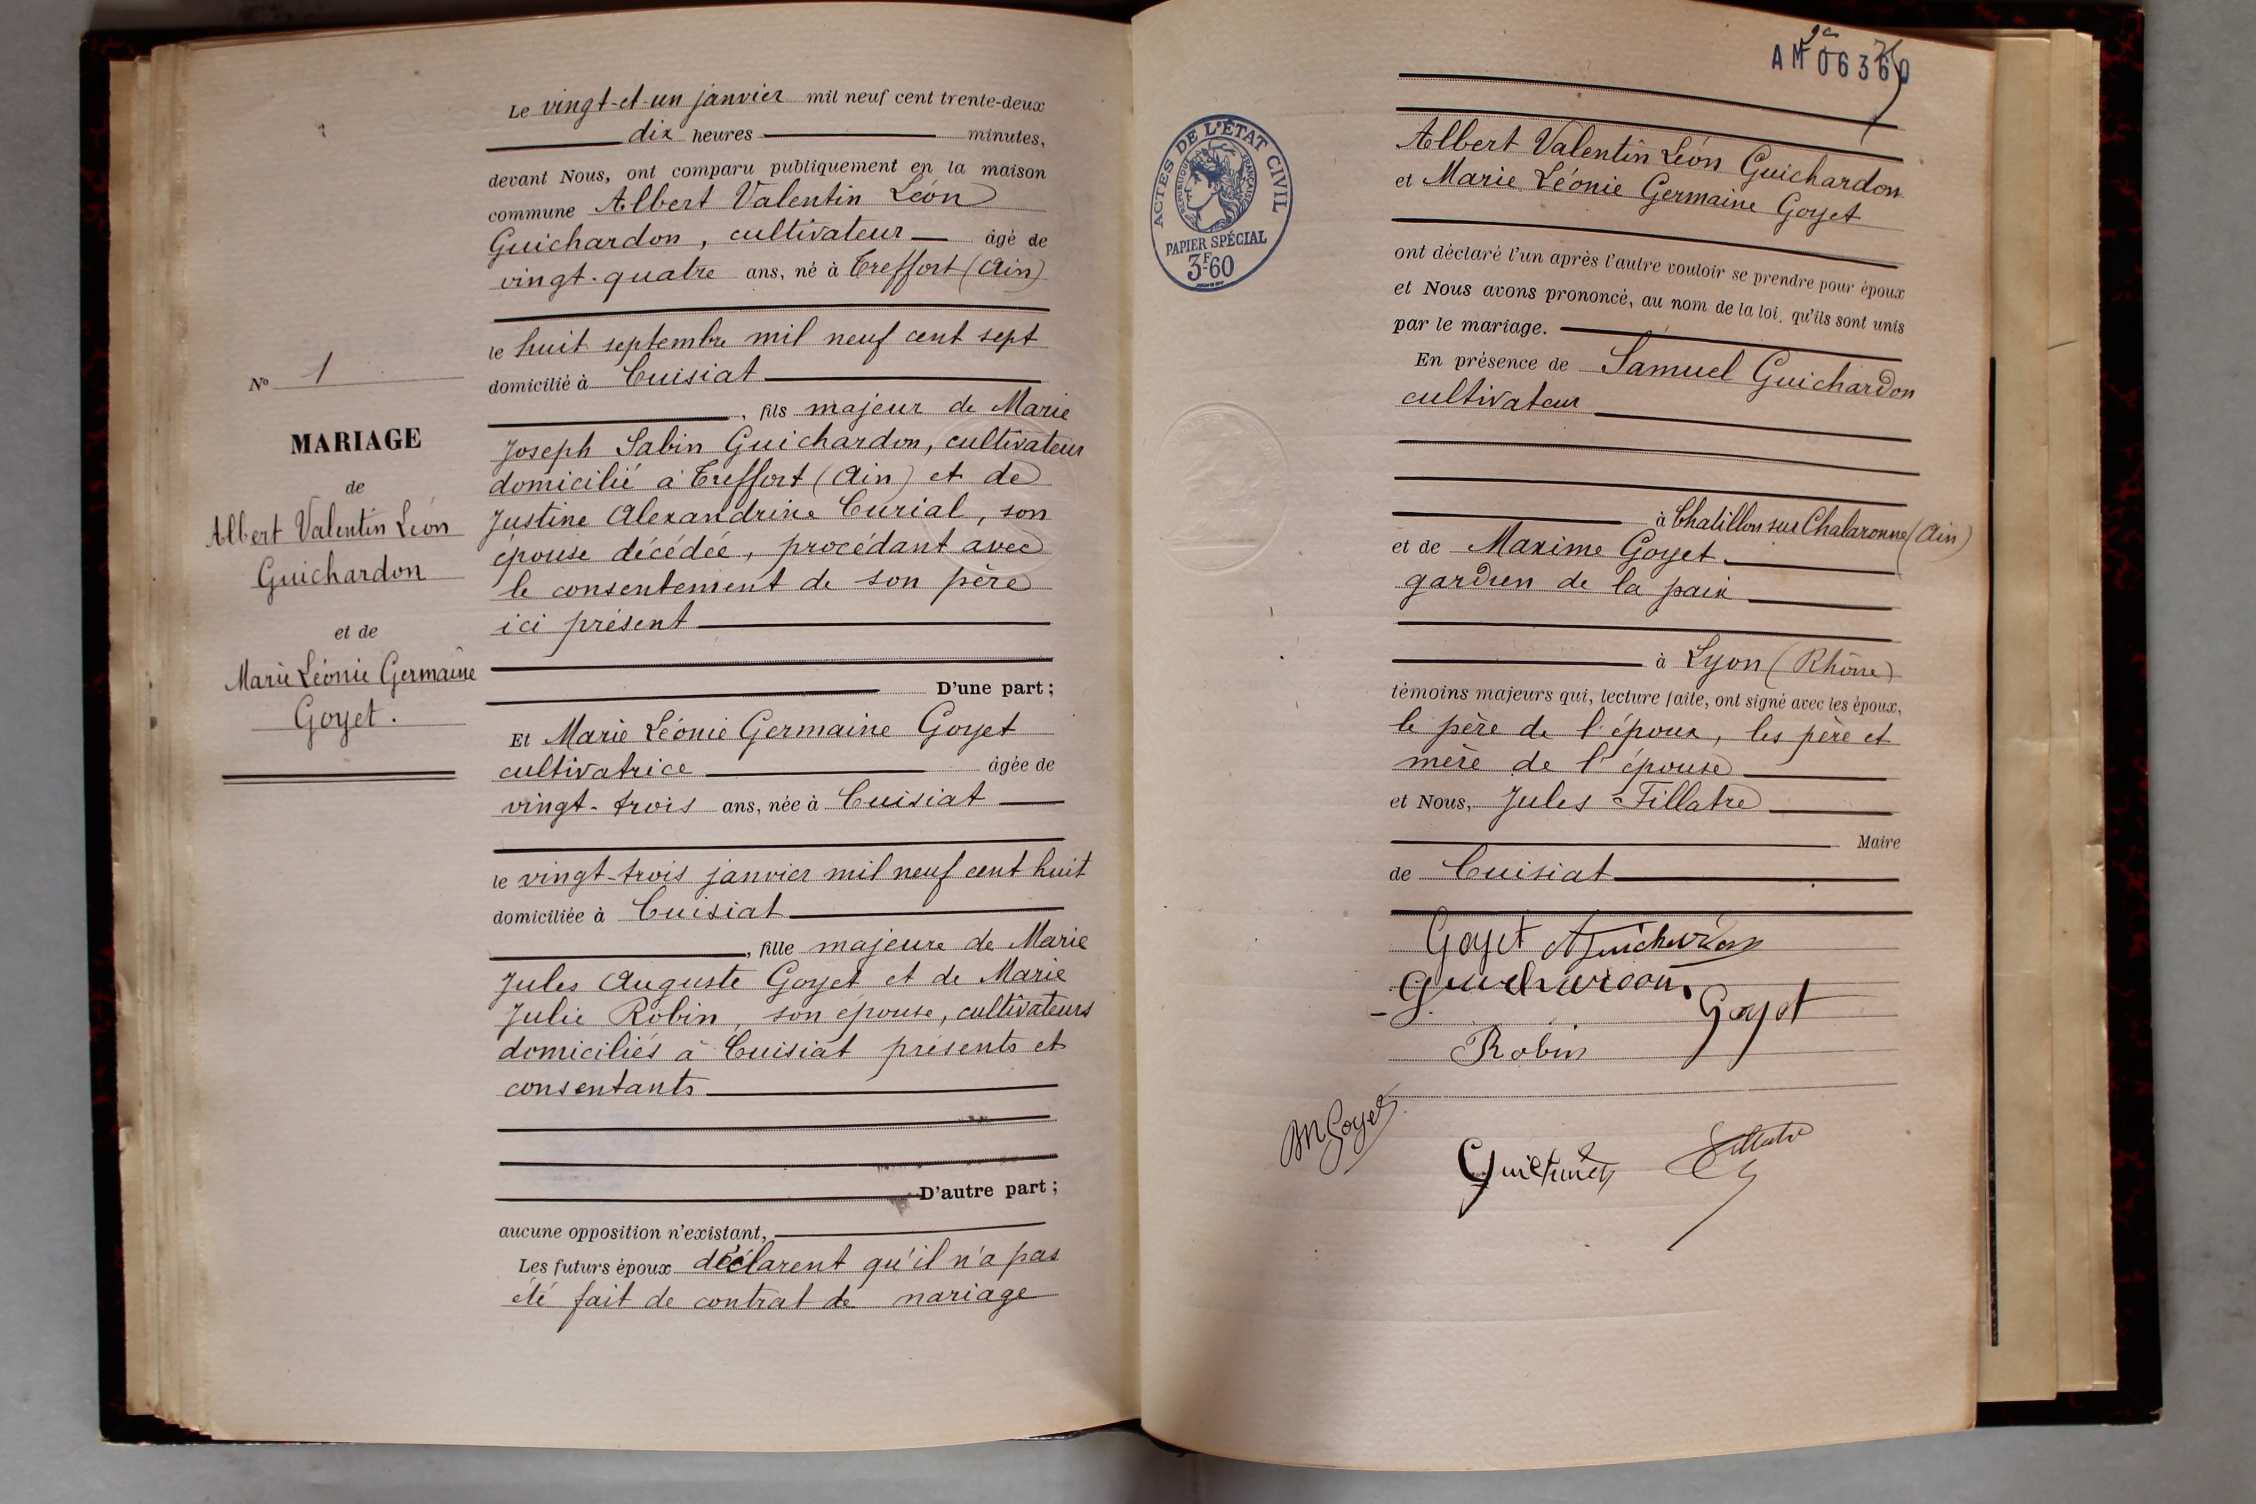 Le vingt-et-un janvier mil neuf cent trente-deux
dix heures minutes,
devant Nous, ont comparu publiquement en la maison
commune Albert Valentin Léon
Guichardon, cultivateur âgé de
vingt-quatre ans, né à Treffort (Ain)
le huit septembre mil neuf cent sept
domicilié à Cuisiat
, fils majeur de Marie
Joseph Sabin Guichardon, cultivateur
domicilié à Treffort (Ain) et de
Justine Alexandrine Curial, son
épouse décédée, procédant avec
le consentement de son père
ici présent
D'une part;
Et Marie Léonie Germaine Goyet
cultivatrice âgée de
vingt-trois ans, née à Cuisiat
le vingt-trois janvier mil neuf cent huit
domiciliée à Cuisiat
, fille majeure de Marie
Jules Auguste Goyet et de Marie
Julie Robin, son épouse, cultivateurs
domiciliés à Cuisiat présents et
consentants
D'autre part;
aucune opposition n'existant,
Les futurs époux déclarent qu'il n'a pas
été fait de contrat de mariage
N° 1
MARIAGE
de
Albert Valentin Léon
Guichardon
et de
Marie Léonie Germaine
Goyet.
AM 06360
ACTES DE L'ÉTAT CIVIL
RÉPUBLIQUE FRANÇAISE
PAPIER SPÉCIAL
3F60
Albert Valentin Léon Guichardon
et Marie Léonie Germaine Goyet
ont déclaré l'un après l'autre vouloir se prendre pour époux
et Nous avons prononcé, au nom de la loi, qu'ils sont unis
par le mariage.
En présence de Samuel Guichardon
cultivateur
à Chatillon sur Chalaronne (Ain)
et de Maxime Goyet
gardien de la paix
à Lyon (Rhône)
témoins majeurs qui, lecture faite, ont signé avec les époux,
le père de l'époux, les père et
mère de l'épouse
et Nous, Jules Fillatre
Maire
de Cuisiat
Goyet A Guichardon
Guichardon
Goyet
Robin
M Goyet
Fillatre